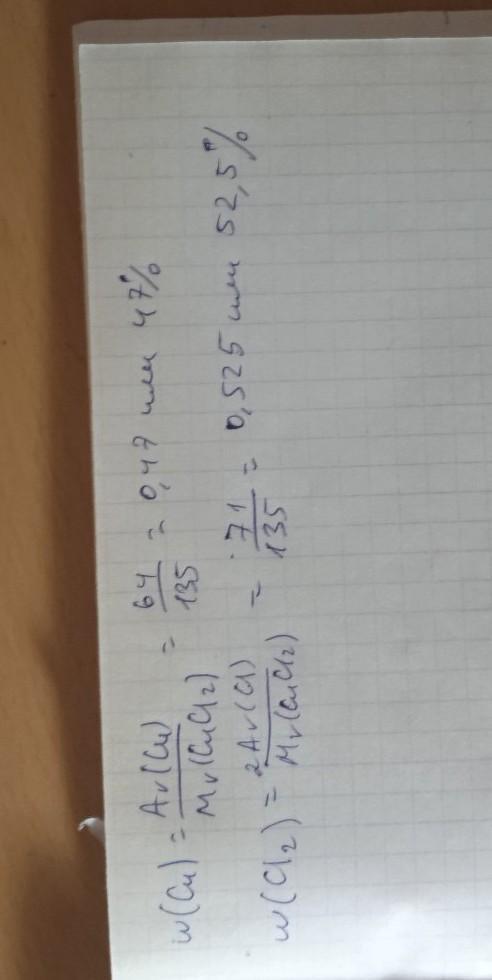 w(Cu) = Ar(Cu) / Mr(CuCl₂) = 64 / 135 = 0,47 или 47%
w(Cl₂) = 2Ar(Cl) / Mr(CuCl₂) = 71 / 135 = 0,525 или 52,5%